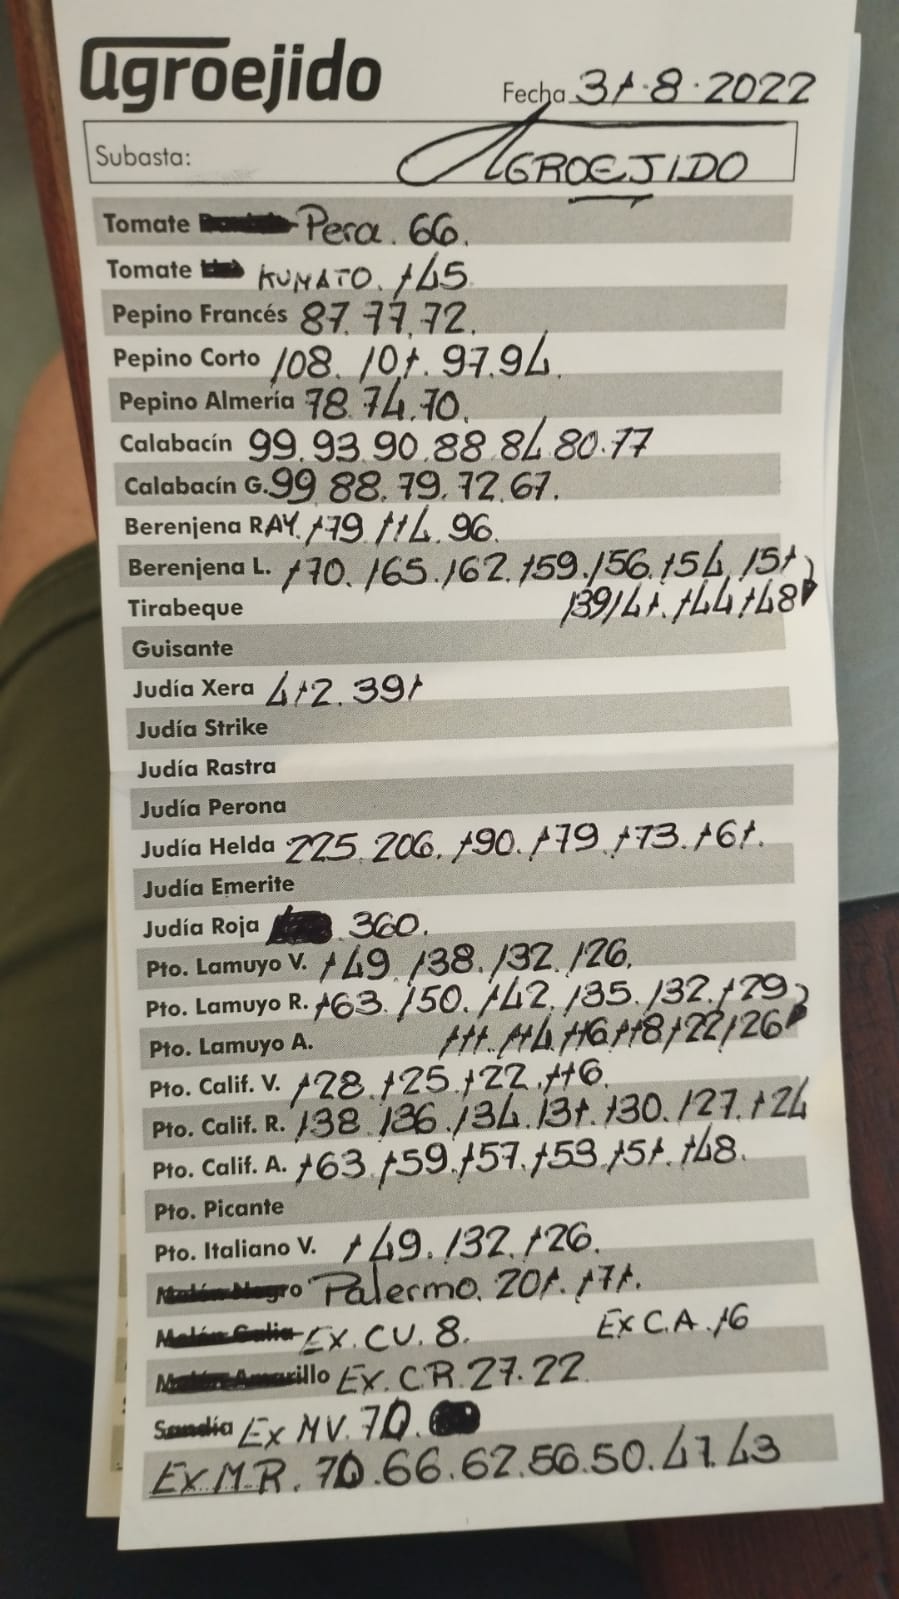 agroejido
Fecha 31.8.2022
Subasta: AGROEJIDO
Tomate Pera. 66.
Tomate KUMATO. 145
Pepino Francés 87.77.72.
Pepino Corto 108. 101. 97.94.
Pepino Almería 78.74.70.
Calabacín 99.93.90.88.84.80.77
Calabacín G. 99 88.79.72.67.
Berenjena RAY. 179 114. 96.
Berenjena L. 170. 165. 162. 159. 156. 154 151
Tirabeque 139 141. 144 148
Guisante
Judía Xera 412. 391
Judía Strike
Judía Rastra
Judía Perona
Judía Helda 225. 206. 190. 179. 173. 161.
Judía Emerite
Judía Roja 360.
Pto. Lamuyo V. 149 138. 132. 126.
Pto. Lamuyo R. 163. 150. 142. 135. 132. 129
Pto. Lamuyo A. 111. 114 116 118 122 126
Pto. Calif. V. 128. 125. 122. 116.
Pto. Calif. R. 138 136. 134. 131. 130. 127. 124
Pto. Calif. A. 163 159. 157. 153 151. 148.
Pto. Picante
Pto. Italiano V. 149. 132. 126.
Melón Negro Palermo. 201. 171.
Melón Galia EX.CU. 8. Ex C.A. 16
Melón Amarillo Ex. CR. 27. 22
Sandía Ex MV. 70.
Ex M.R. 70.66.62.56.50.47.43